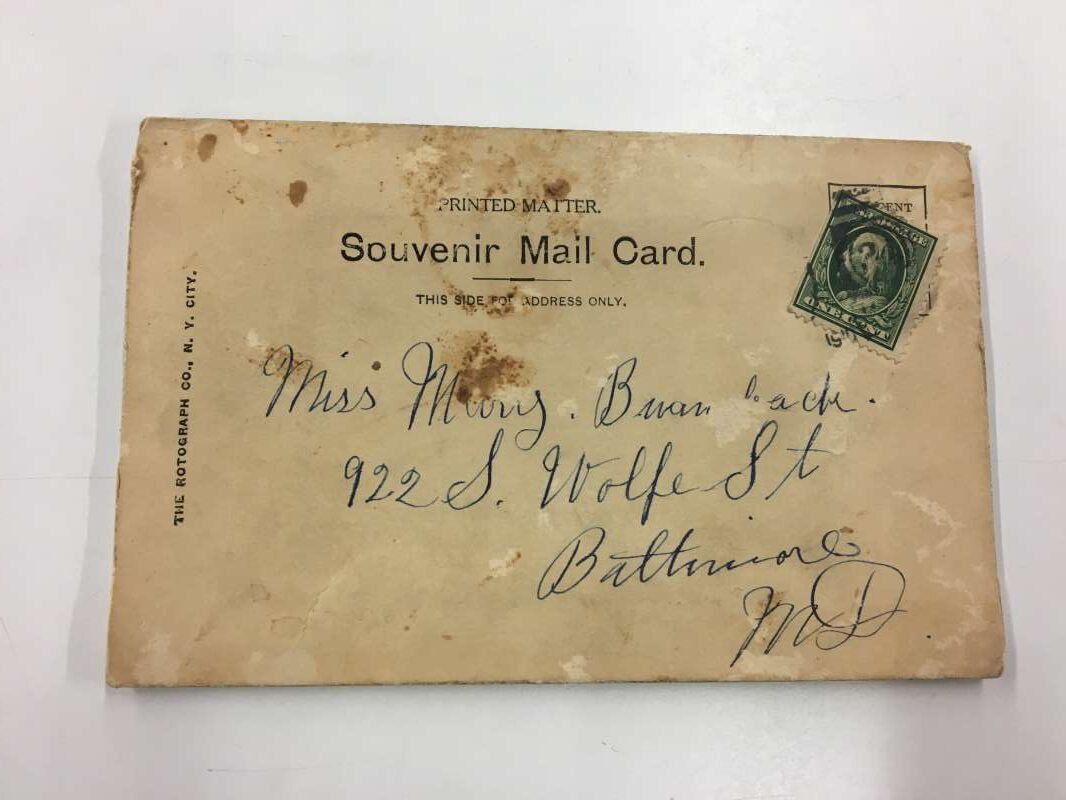 PRINTED MATTER.
Souvenir Mail Card.
THIS SIDE FOR ADDRESS ONLY.
THE ROTOGRAPH CO., N. Y. CITY.
ONE CENT
Miss
922 S. Wolfe St
Baltimore
MD.